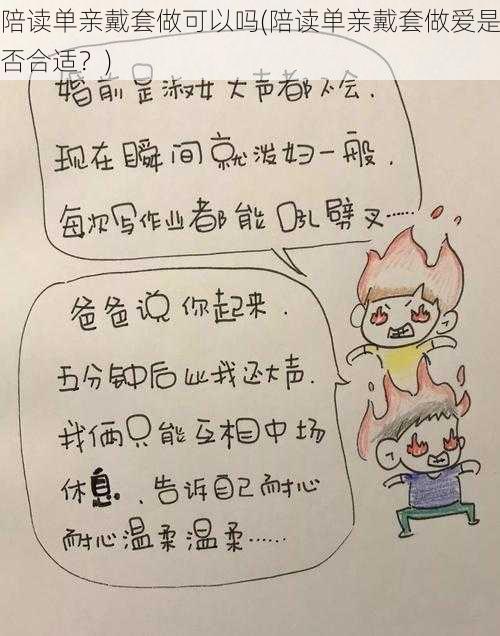 陪读单亲戴套做可以吗(陪读单亲戴套做爱是
否合适？)
婚前是淑女大声都不会.
现在瞬间就泼妇一般.
每次写作业都能吼劈叉……
爸爸说你起来.
五分钟后比我还大声.
我俩只能互相中场
休息.、告诉自己耐心
耐心温柔温柔……